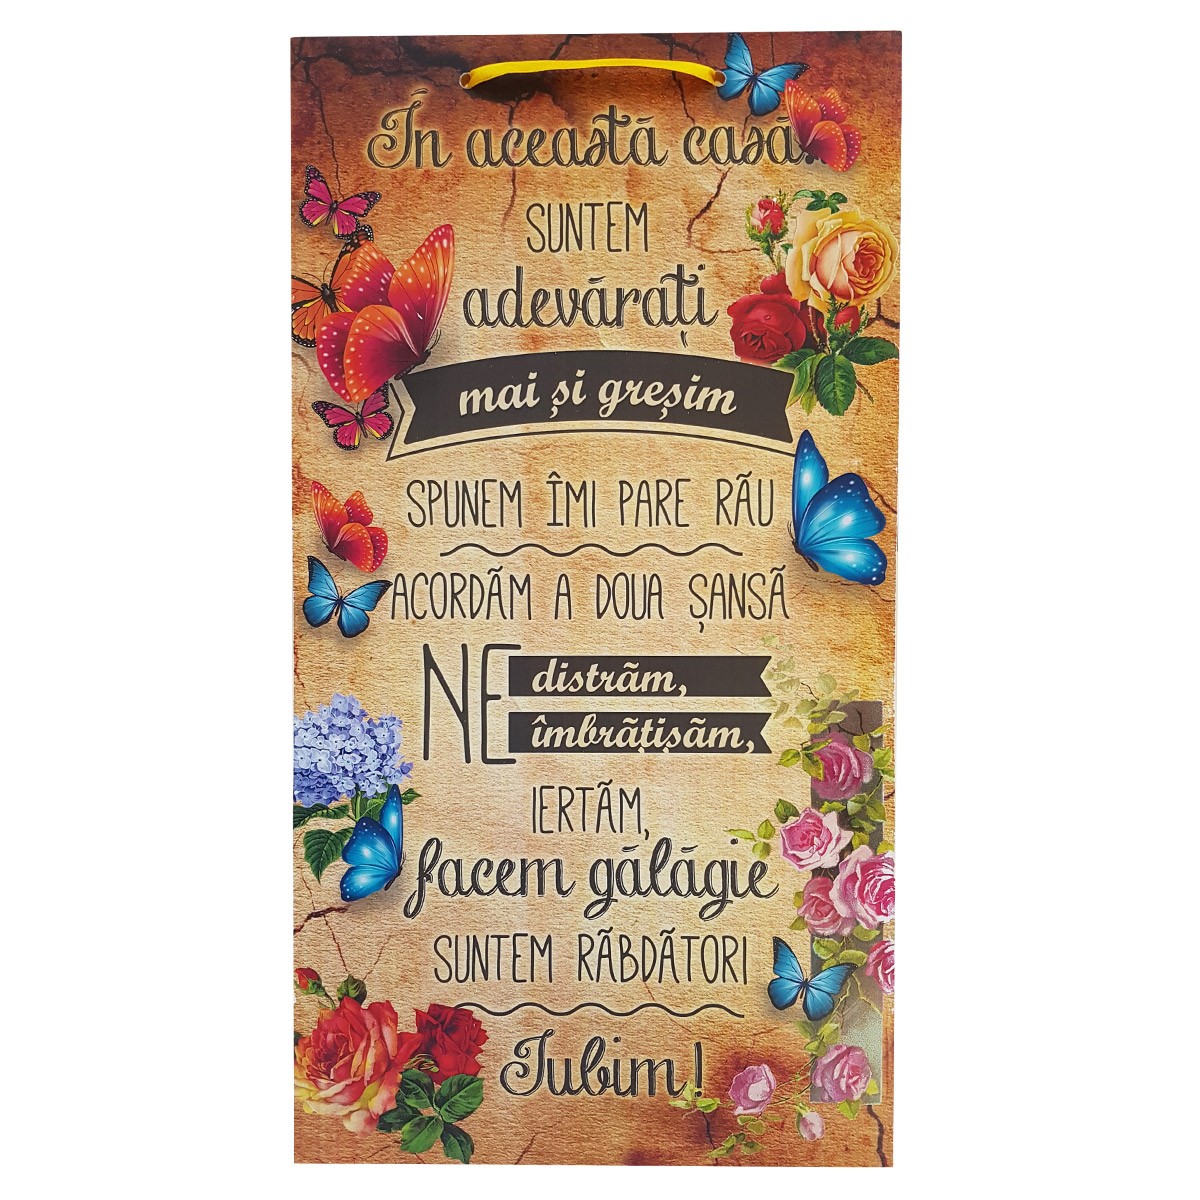 În această casă:
SUNTEM
adevărați
mai și greșim
SPUNEM ÎMI PARE RĂU
ACORDĂM A DOUA ȘANSĂ
NE distrăm,
îmbrățișăm,
IERTĂM,
facem gălăgie
SUNTEM RĂBDĂTORI
Iubim!